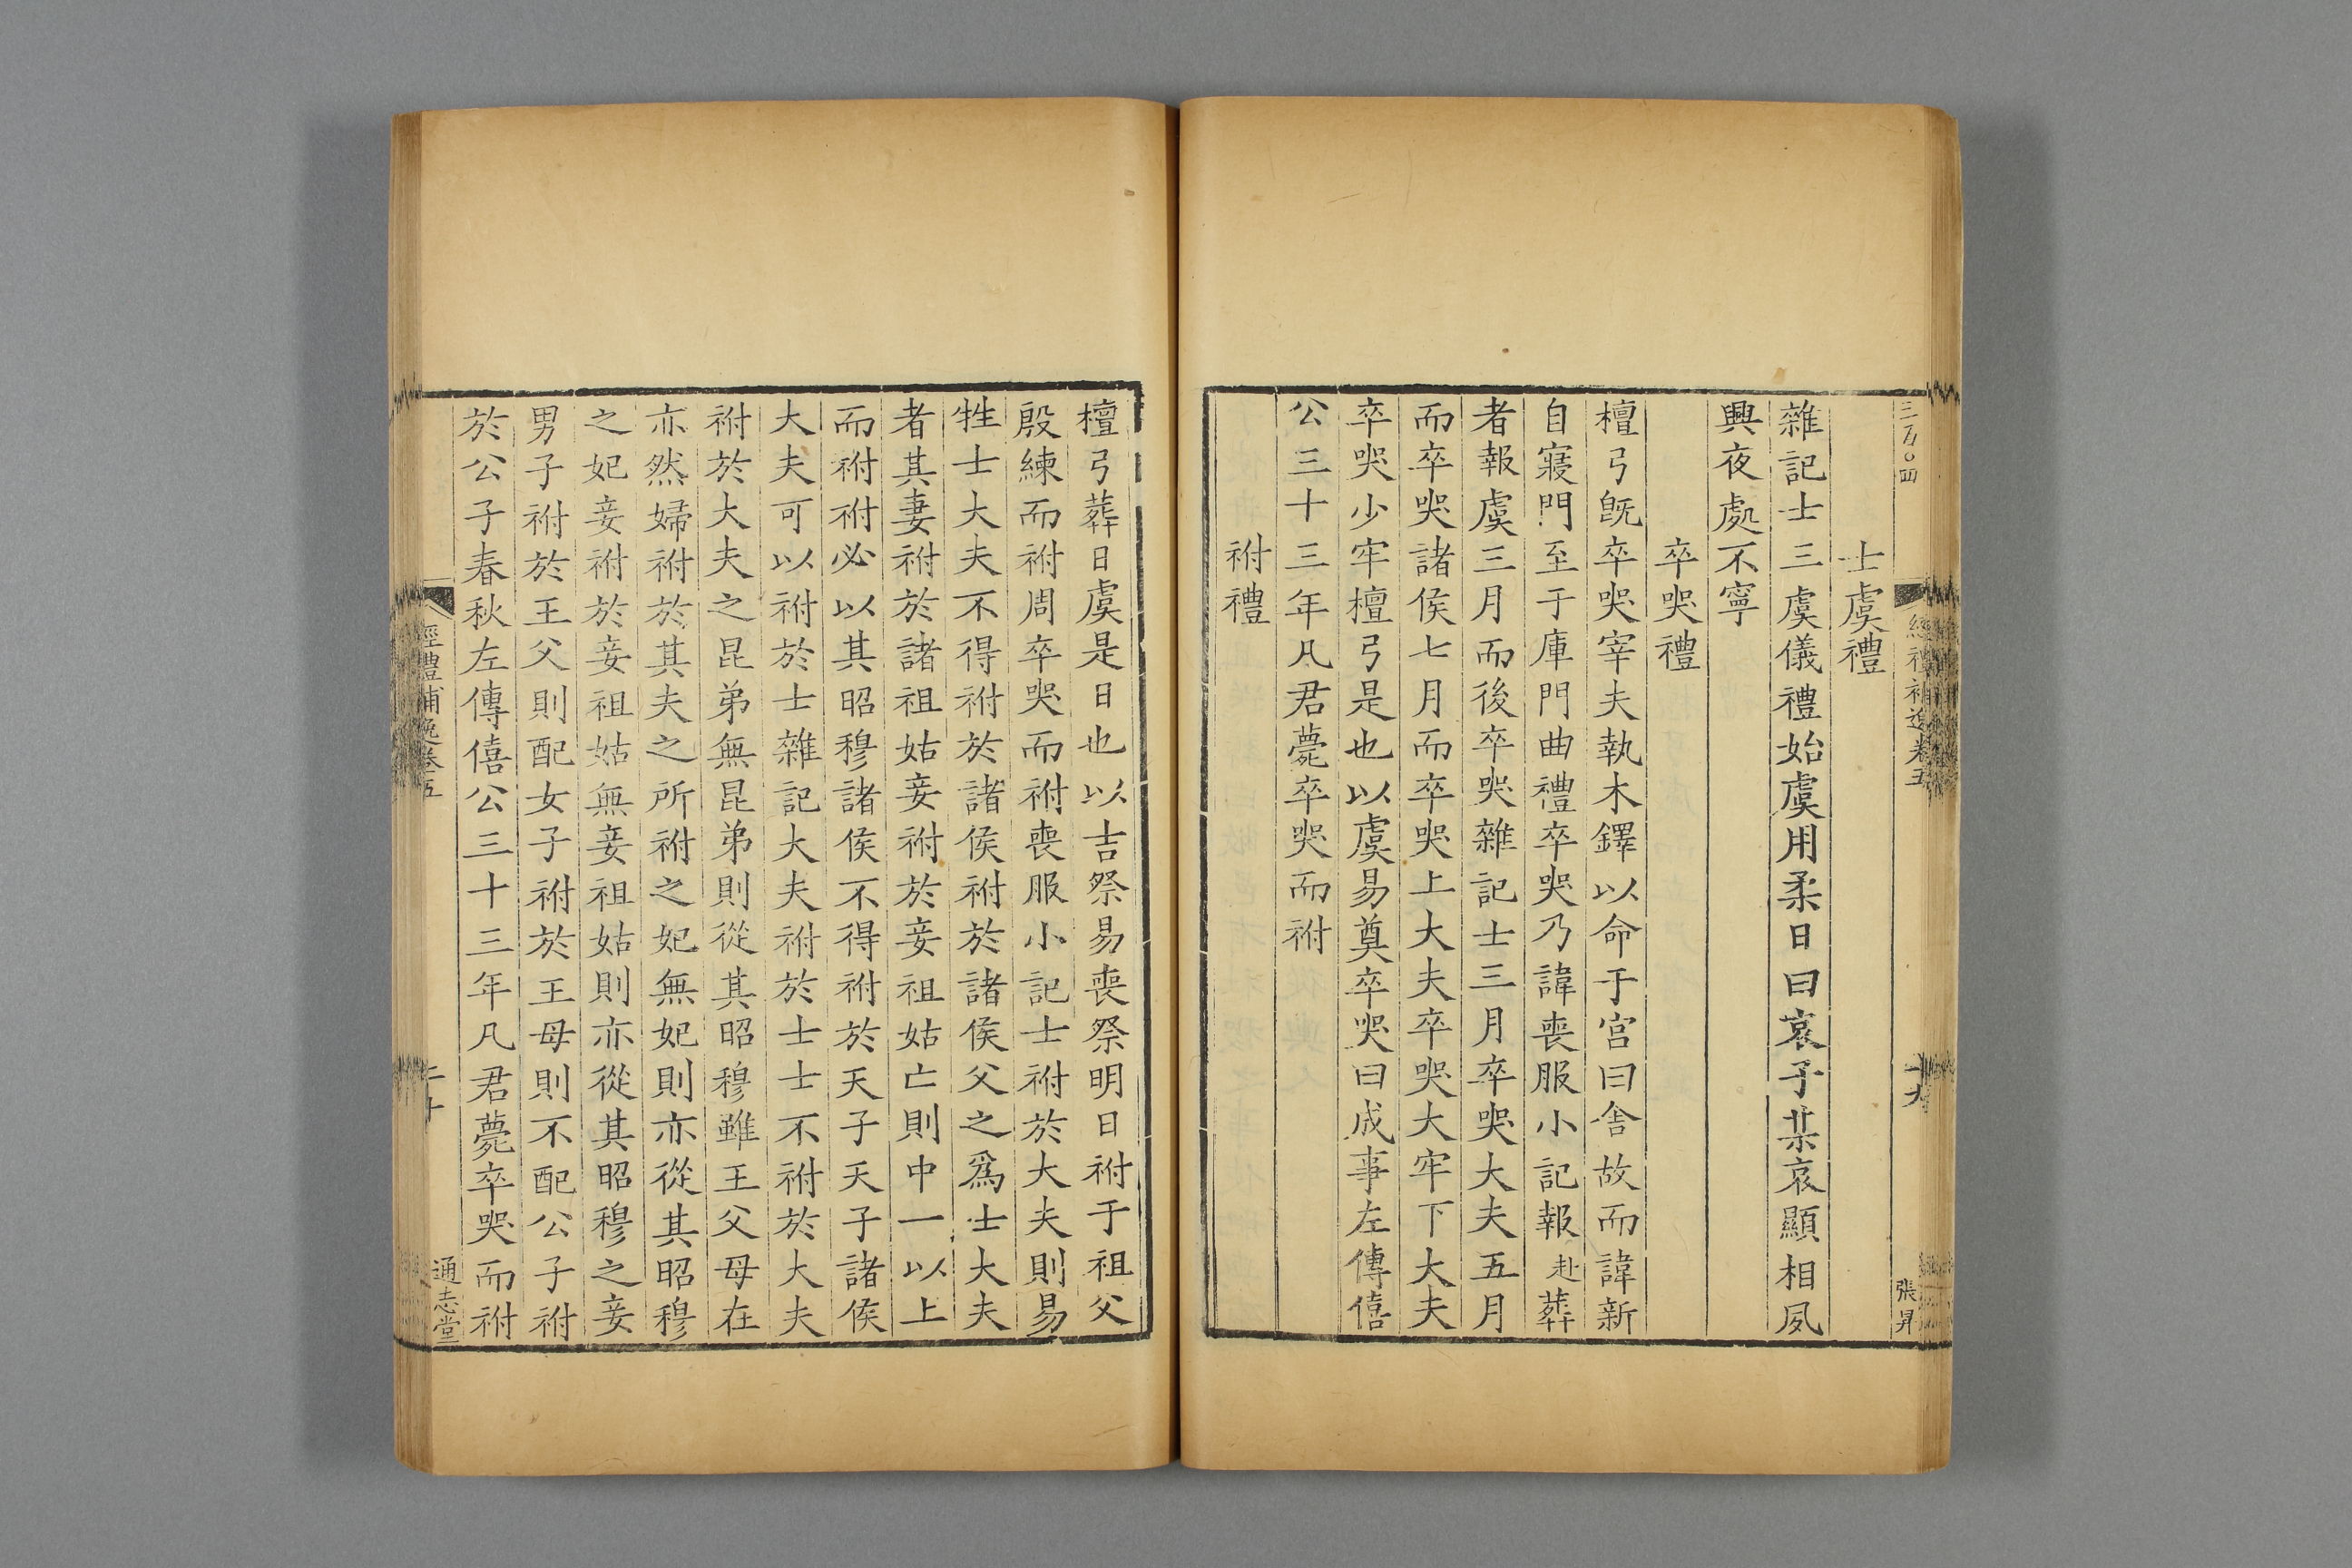 三百〇四
經禮補逸卷五
十九
張昇
士虞禮
雜記士三虞儀禮始虞用柔日曰哀子某哀顯相夙
興夜處不寧
卒哭禮
檀弓旣卒哭宰夫執木鐸以命于宮曰舍故而諱新
自寢門至于庫門曲禮卒哭乃諱喪服小記報赴葬
者報虞三月而後卒哭雜記士三月卒哭大夫五月
而卒哭諸侯七月而卒哭上大夫卒哭大牢下大夫
卒哭少牢檀弓是也以虞易奠卒哭曰成事左傳僖
公三十三年凡君薨卒哭而祔
祔禮
檀弓葬日虞是日也以吉祭易喪祭明日祔于祖父
殷練而祔周卒哭而祔喪服小記士祔於大夫則易
牲士大夫不得祔於諸侯祔於諸侯父之爲士大夫
者其妻祔於諸祖姑妾祔於妾祖姑亡則中一以上
而祔祔必以其昭穆諸侯不得祔於天子天子諸侯
大夫可以祔於士雜記大夫祔於士士不祔於大夫
祔於大夫之昆弟無昆弟則從其昭穆雖王父母在
亦然婦祔於其夫之所祔之妃無妃則亦從其昭穆
之妃妾祔於妾祖姑無妾祖姑則亦從其昭穆之妾
男子祔於王父則配女子祔於王母則不配公子祔
於公子春秋左傳僖公三十三年凡君薨卒哭而祔
經禮補逸卷五
二十
通志堂